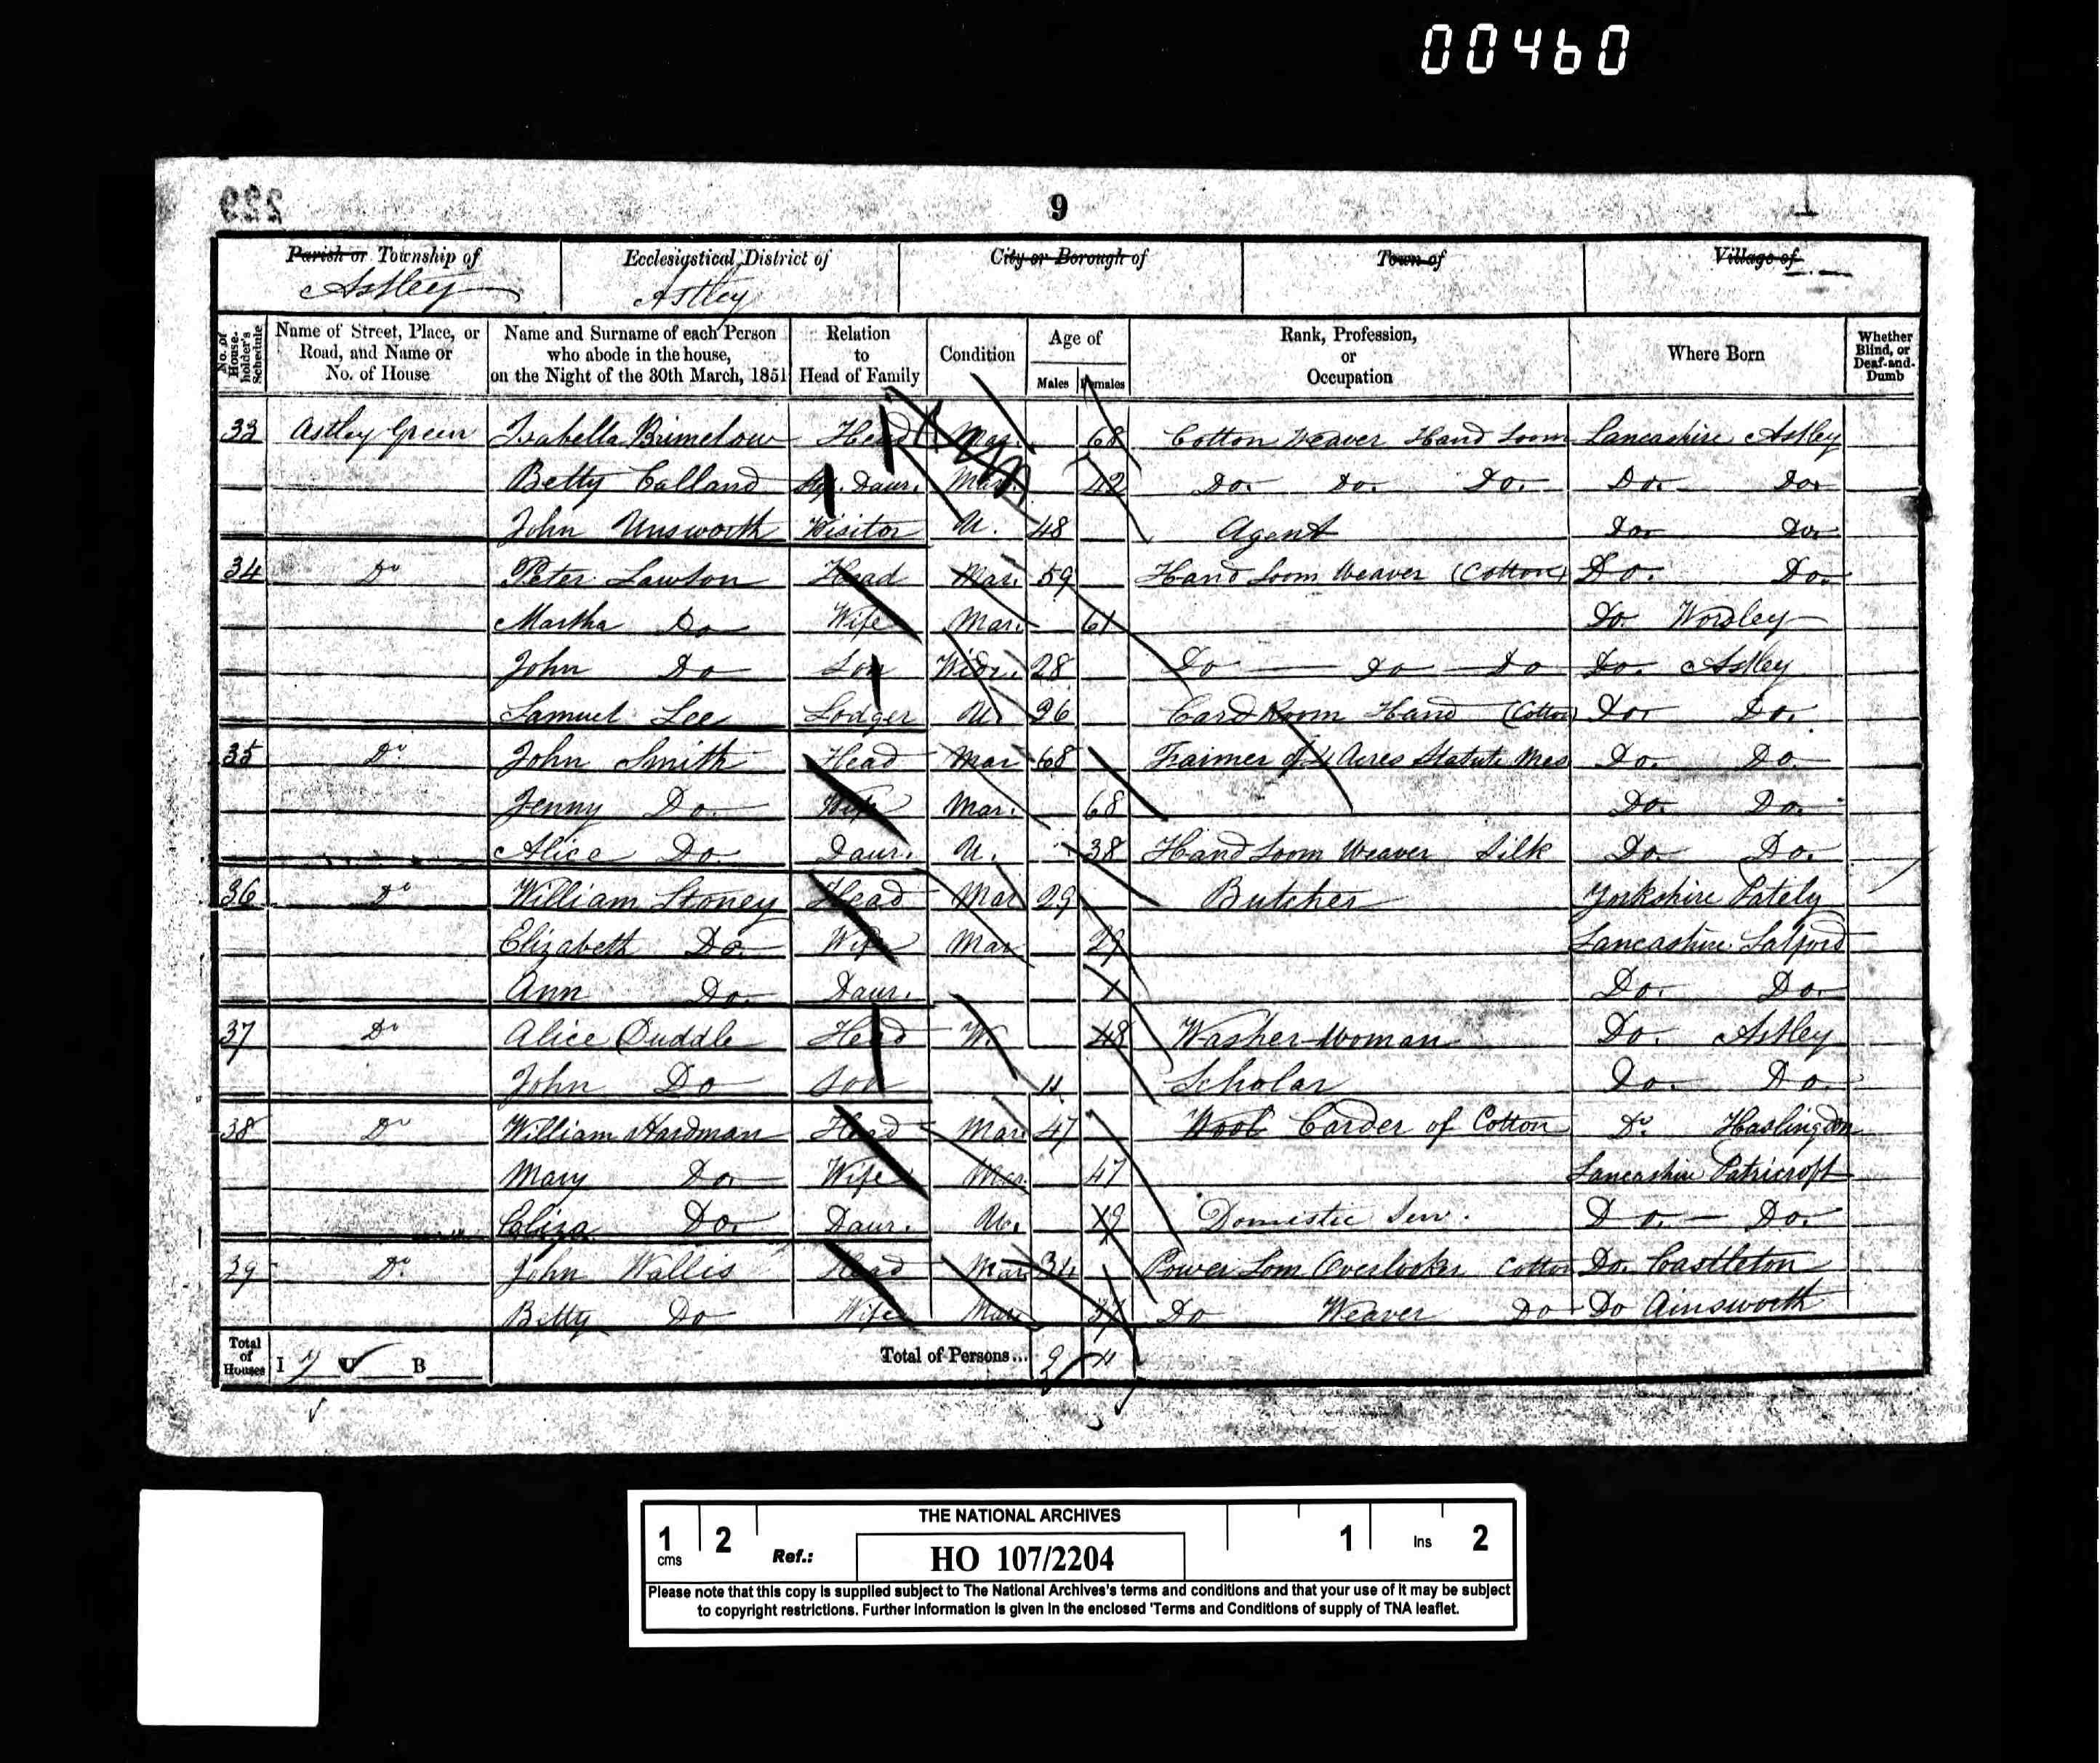 00460
229
9
Parish or Township of Ecclesiastical District of City or Borough of Town of Village of
Astley Astley
No. of House-holder's Schedule
Name of Street, Place, or Road, and Name or No. of House
Name and Surname of each Person who abode in the house, on the Night of the 30th March, 1851
Relation to Head of Family
Condition
Age of
Males Females
Rank, Profession, or Occupation
Where Born
Whether Blind, or Deaf-and-Dumb
33 Astley Green Isabella Brimelow Head Mar. 68 Cotton Weaver Hand Loom Lancashire Astley
Betty Calland Daur. Mar. 42 Do. Do. Do. Do. Do.
John Unsworth Visitor U. 48 Agent Do. Do.
34 Do Peter Lawton Head Mar. 59 Hand Loom Weaver (Cotton) Do. Do.
Martha Do Wife Mar. 61 Do. Worsley
John Do Son Widr. 28 Do Do Do Do. Astley
Samuel Lee Lodger U. 26 Card Room Hand (Cotton) Do. Do.
35 Do. John Smith Head Mar 68 Farmer of 4 Acres Statute Mes Do. Do.
Jenny Do. Wife Mar. 68 Do. Do.
Alice Do. Daur. U. 38 Hand Loom Weaver Silk Do. Do.
36 Do William Stoney Head Mar 29 Butcher Yorkshire Pately
Elizabeth Do. Wife Mar 29 Lancashire Salford
Ann Do. Daur. 1 Do. Do.
37 Do Alice Cuddle Head W. 48 Washer-Woman Do. Astley
John Do Son 11 Scholar Do. Do.
38 Do William Hardman Head Mar. 47 Wool Carder of Cotton Do. Haslingdon
Mary Do. Wife Mar. 47 Lancashire Patricroft
Eliza Do. Daur. U. 19 Domestic Serv. Do. Do.
39 Do. John Wallis Head Mar 34 Power Lom Overlooker Cotton Do. Castleton
Betty Do Wife Mar 37 Do Weaver Do Do Ainsworth
Total of Houses I 7 U B Total of Persons... 9 11
THE NATIONAL ARCHIVES
1 cms 2 Ref.: HO 107/2204 1 Ins 2
Please note that this copy is supplied subject to The National Archives's terms and conditions and that your use of it may be subject
to copyright restrictions. Further information is given in the enclosed 'Terms and Conditions of supply of TNA leaflet.